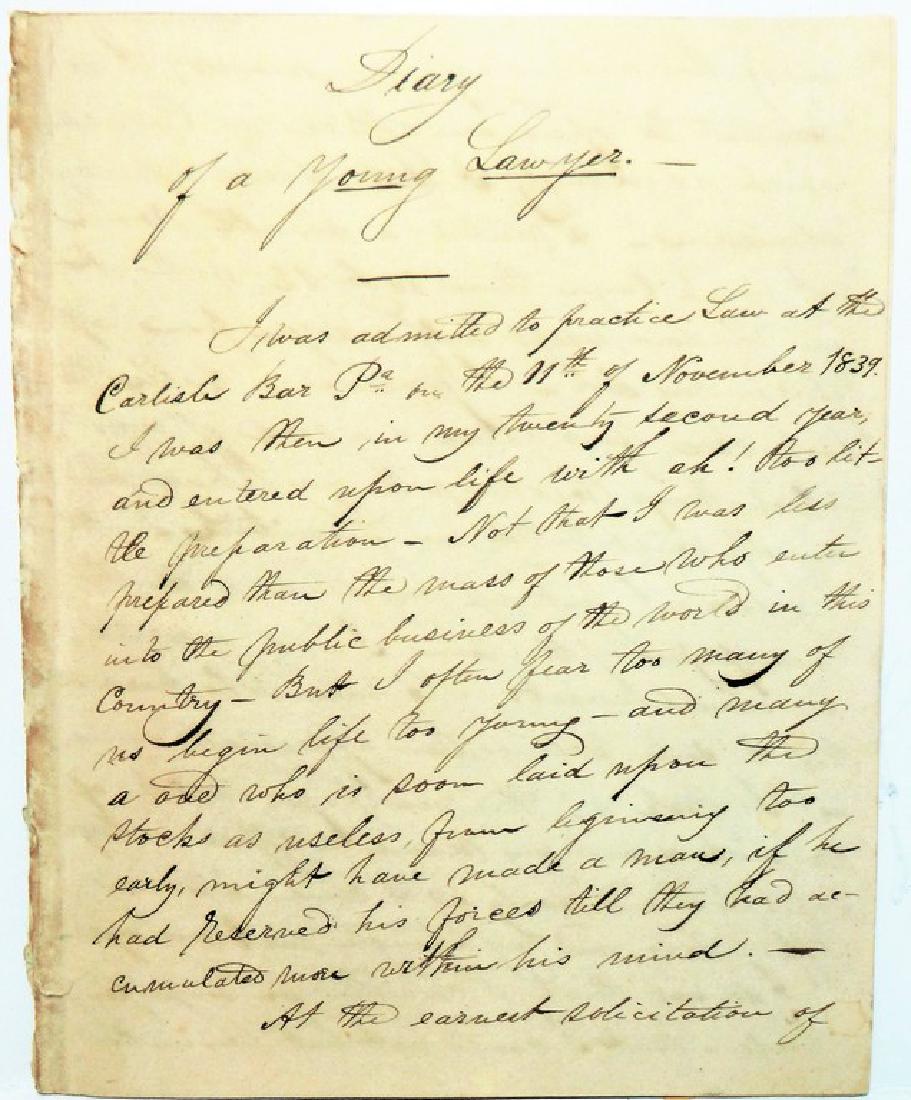 Diary
of a Young Lawyer. —
I was admitted to practice Law at the
Carlisle Bar Pa on the 11th of November 1839.
I was then in my twenty second year,
and entered upon life with ah! too lit-
tle preparation – Not that I was less
prepared than the mass of those who enter
into the public business of the world in this
Country – But I often fear too many of
us begin life too young – and many
a one who is soon laid upon the
stocks as useless, from beginning too
early, might have made a man, if he
had reserved his forces till they had ac-
cumulated more within his mind. —
At the earnest solicitation of